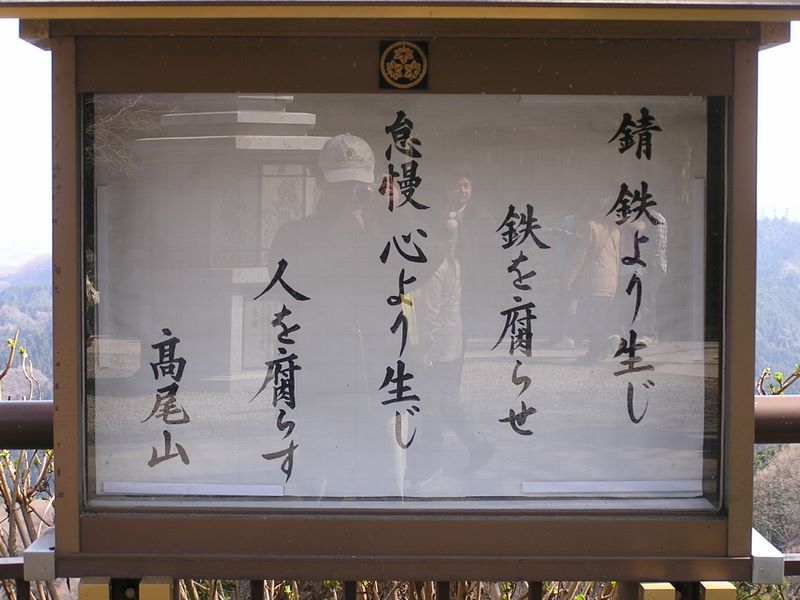 錆 鉄より生じ
鉄を腐らせ
怠慢 心より生じ
人を腐らす
髙尾山